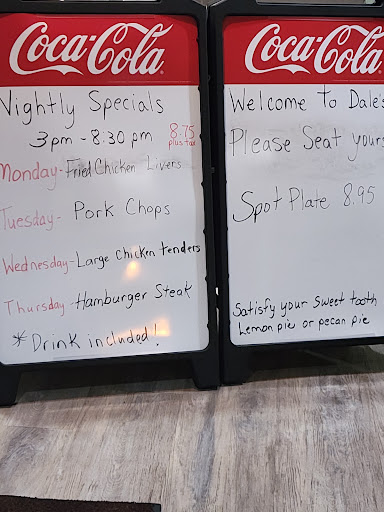 Coca-Cola
Nightly Specials
3pm - 8:30 pm 8.75
plus tax
Monday - Fried Chicken Livers
Tuesday - Pork Chops
Wednesday - Large Chicken tenders
Thursday - Hamburger Steak
* Drink included!
Coca-Cola
Welcome To Dale's
Please Seat yours
Spot Plate 8.95
Satisfy your sweet tooth
Lemon pie or pecan pie